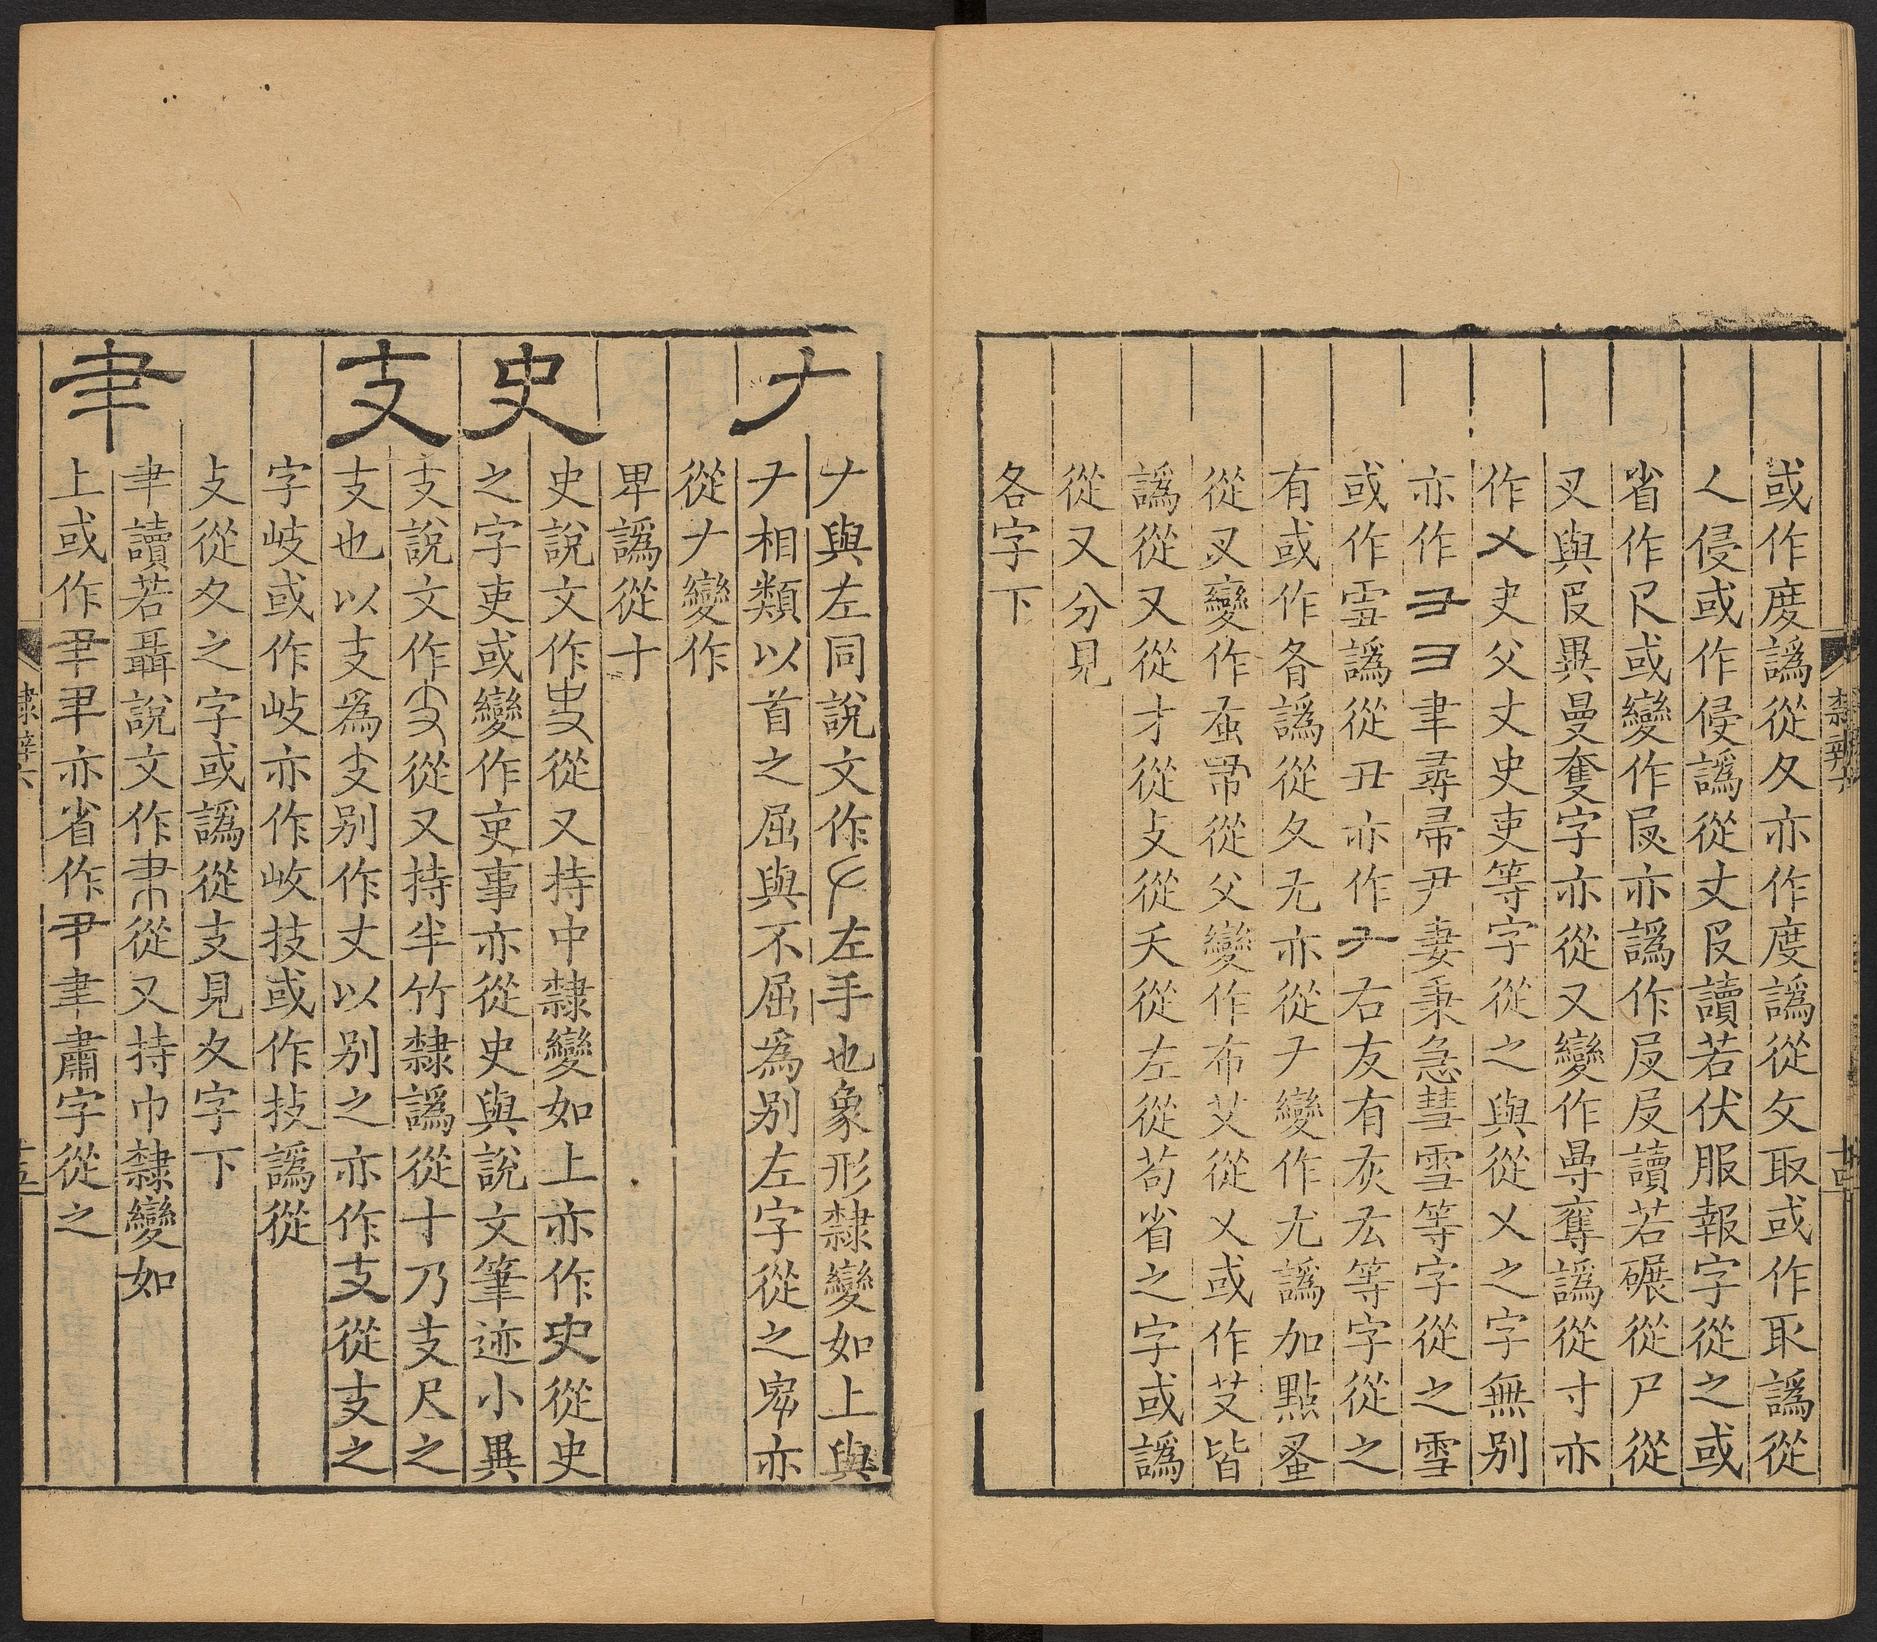 或作度譌從夂亦作度譌從攵取或作取譌從
人侵或作侵譌從丈𠬝讀若伏服報字從之或
省作尺或變作𠬝亦譌作𠬝𠬝讀若碾從尸從
又與𠬝異曼奪字亦從又變作㝵奪譌從寸亦
作乂史父丈史吏等字從之與從乂之字無别
亦作彐彐聿尋帚尹妻秉急彗雪等字從之雪
或作雪譌從丑亦作𠂇右友有灰厷等字從之
有或作㕛譌從夂尢亦從𠂇變作尤譌加點蚤
從叉變作蚤𢁥從父變作布艾從乂或作芆皆
譌從又從才從攴從夭從左從茍省之字或譌
從又分見
各字下
𠂇
𠂇與左同說文作左手也象形隸變如上與
𠂇相類以首之屈與不屈爲别左字從之㝝亦
從𠂇變作
卑譌從十
史
史說文作㕜從又持中隸變如上亦作史從史
之字吏或變作吏事亦從史與說文筆迹小異
支
支說文作𠦙從又持半竹隸譌從十乃支尺之
支也以支爲𠦙别作丈以别之亦作支從支之
字岐或作岐亦作㟁技或作技譌從
攴從夂之字或譌從支見夂字下
𦘒
𦘒讀若聶說文作𦘒從又持巾隸變如
上或作𦘒𦘒亦省作𦘒聿肅字從之
隸辨六
十四
十五